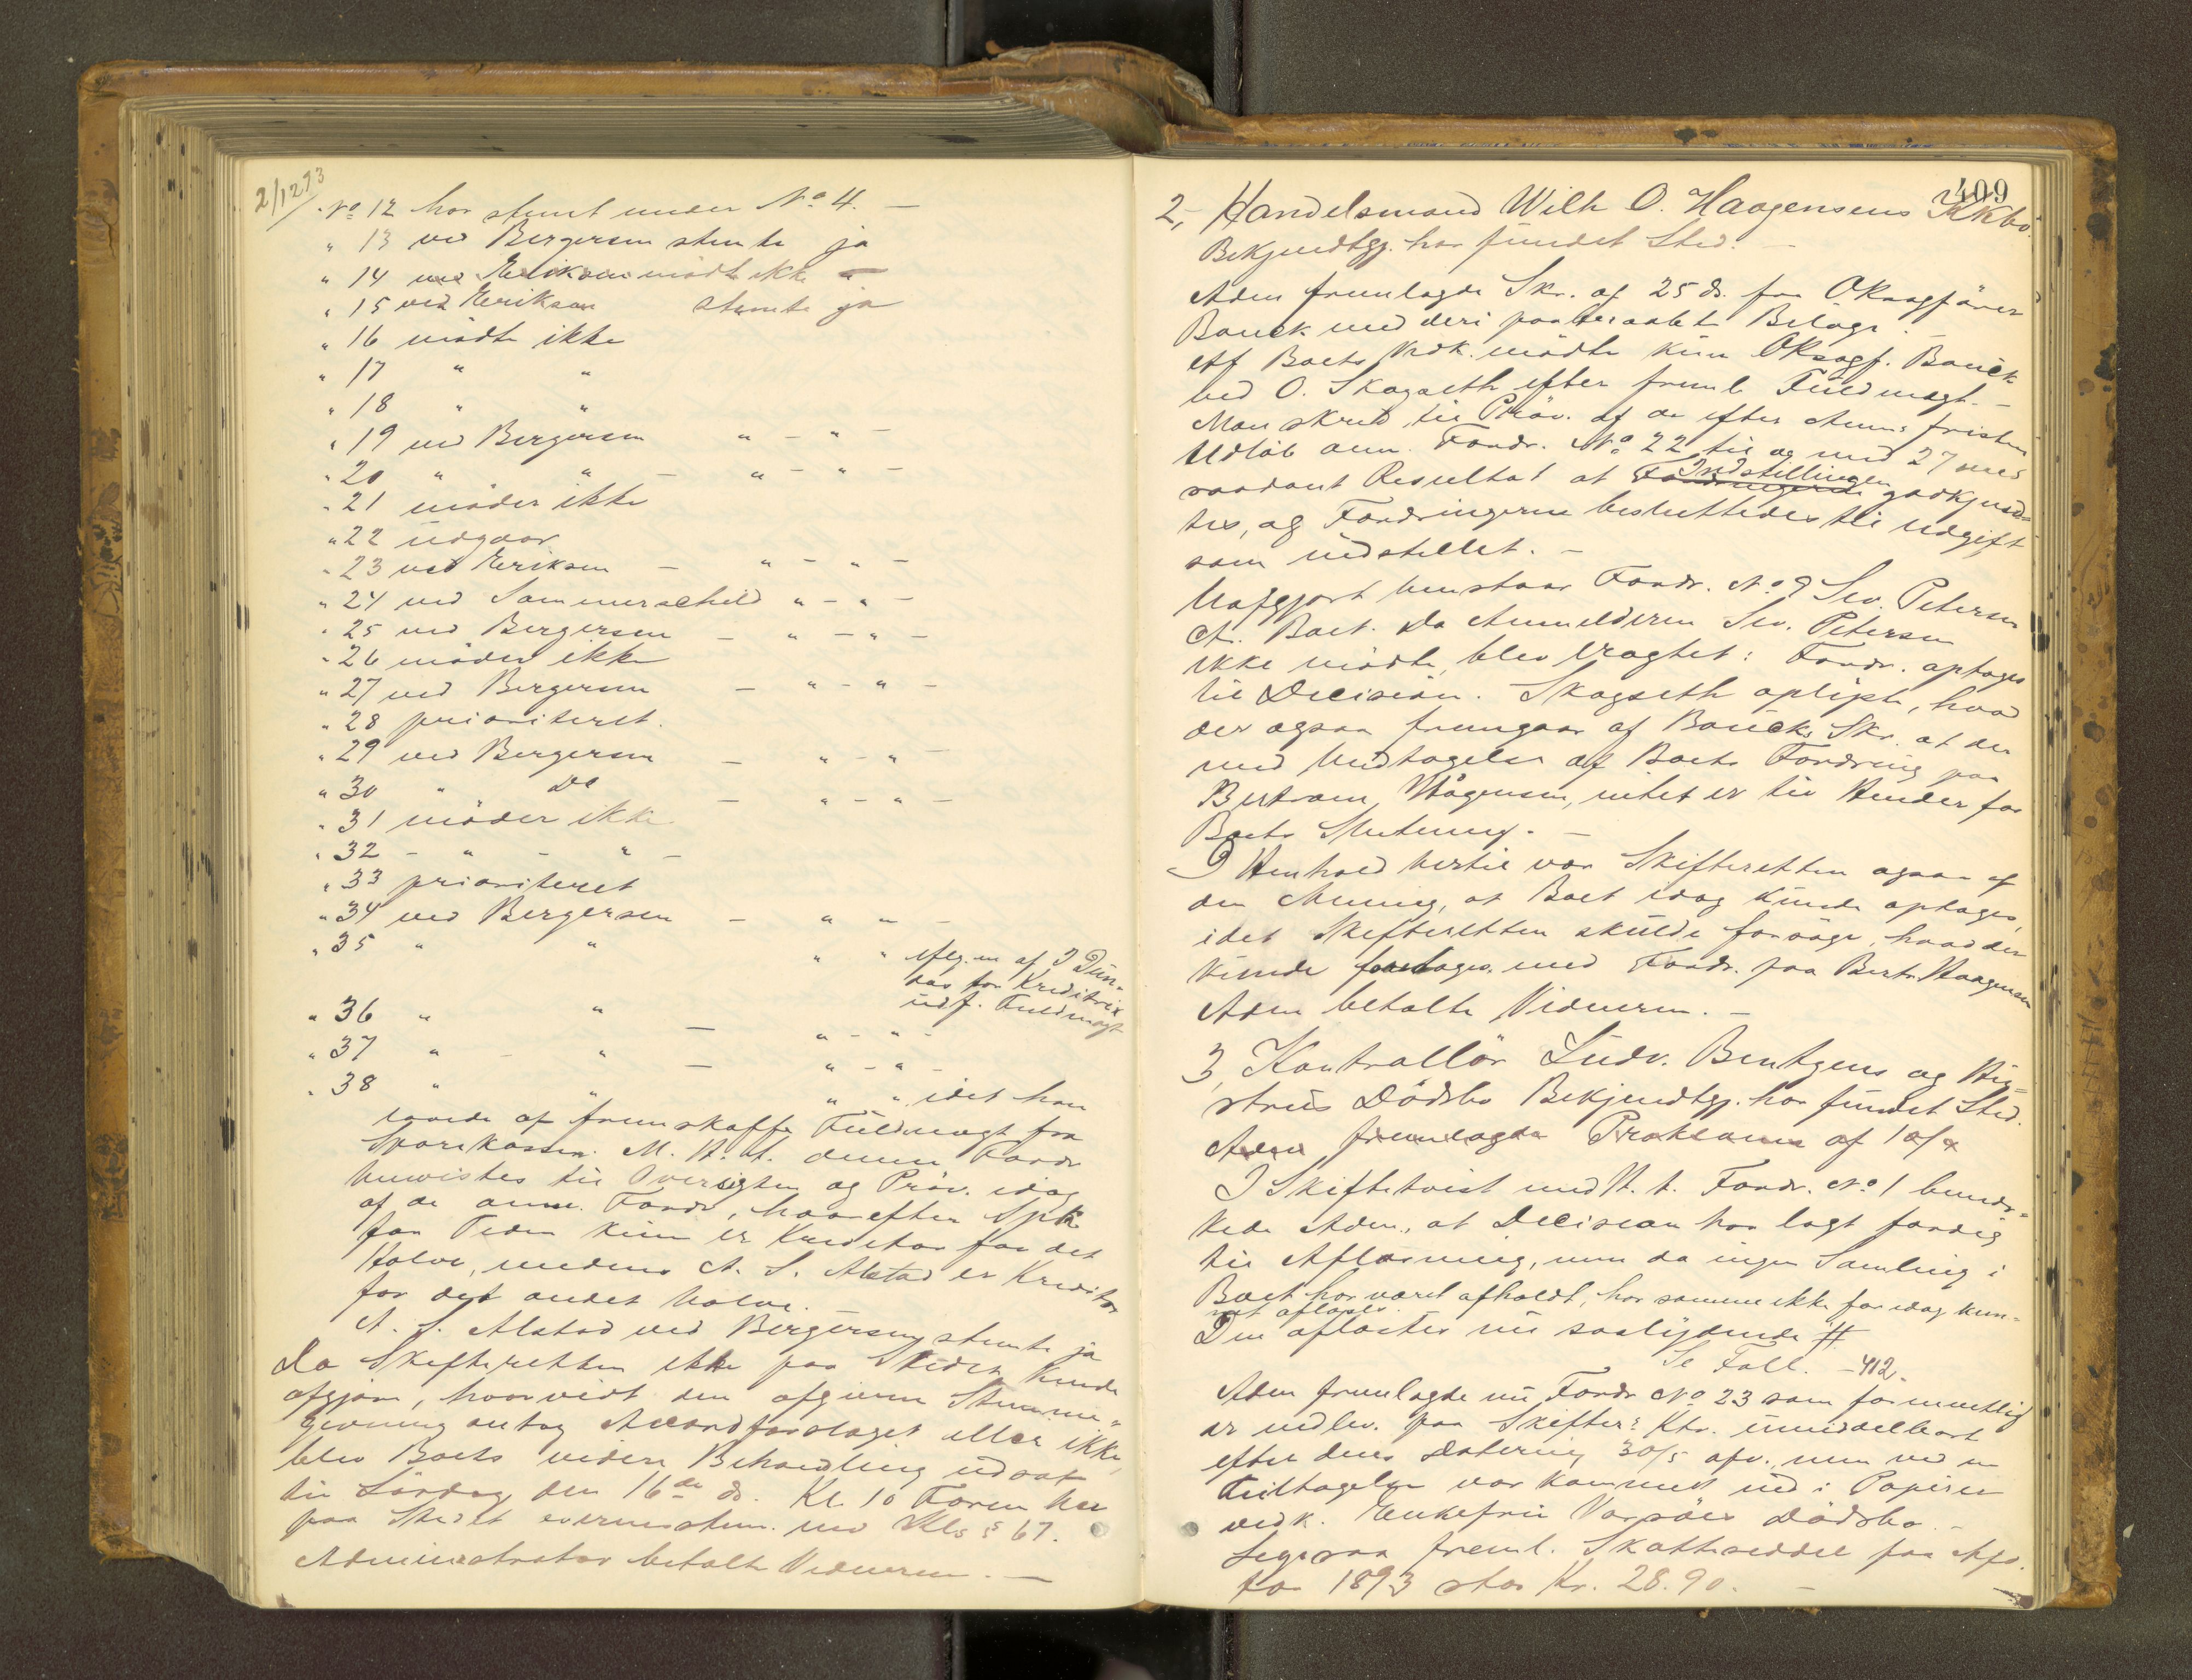 2/12 93
No 12 har stemt under No 4. –
" 13 ved Bergersen stemte ja
" 14 ved Eriksen mødte ikke –
" 15 ved Eriksen stemte ja
" 16 mødte ikke
" 17 " "
" 18 " "
" 19 ved Bergersen " – " –
" 20 " " – " – " –
" 21 møder ikke
" 22 udgaar
" 23 ved Eriksen – " – " –
" 24 ved Sommerschild " – " –
" 25 ved Bergersen – " – " –
" 26 møder ikke
" 27 ved Bergersen – " – " –
" 28 prioriteret.
" 29 ved Bergersen – " – " –
" 30 " Do – " – " –
" 31 møder ikke
" 32 – " – " –
" 33 prioriteret
" 34 ved Bergersen – " " –
" 35 " " " " iflg. en af J Dun-
kas for Kreditrix
udf. Fuldmagt
" 36 " " – " – " –
" 37 " – " – " – " –
" 38 " " " " idet han
lovede at fremskaffe Fuldmagt fra
Sparekassen. M. H. t. denne Fordr
henvistes til Oversigten og Prøv. idag
af de anm. Fordr, hvorefter Spk
for Tiden kun er Kreditor for det
Halve, medens A. S. Alstad er Kreditor
for det andet halve. –
A. S. Alstad ved Bergersen stemte ja
Da Skifteretten ikke paa Stedet kunde
afgjøre, hvorvidt den afgivne Stemme-
givning antog Accordforslaget eller ikke,
blev Boets videre Behandling udsat
til Lørdag den 16de ds. Kl. 10 Form her
paa Stedet overensstem. med Kls § 67.
Administrator betalte Vidnerne. –
409
2, Handelsmand Wilh O. Haagensens KKbo.
Bekjendtgj. har fundet Sted. –
Adm fremlagde Skr. af 25 ds. fra OKsagfører
Bauck med deri paaberaabte Bilage. –
Af Boets Vedk. mødte kun OKsagf. Bauck
ved O. Skogseth efter freml Fuldmagt. –
Man skred til Prøv. af de efter Anm: fristens
Udløb anm. Fordr. No 22 til og med 27 med
saadant Resultat at Indstillingen godkjend-
tes, og Fordringerne besluttedes til udgift
som indstillet. –
Uafgjort henstaar Fordr. No 9 Sev. Petersen
ct. Boet. Da Anmelderen Sev. Petersen
ikke mødte, blev eragtet: Fordr. optages
til Decision. Skogseth oplyste, hvad
der ogsaa fremgaar af Baucks Skr. at der
med Undtagelse af Boets Fordring paa
Bertram Haagensen, intet er til Hinder for
Boets Slutning. –
I Henhold hertil var Skifteretten ogsaa af
den Mening, at Boet idag kunde optages,
idet Skifteretten skulde forsøge, hvad der
kunde foretages med Fordr. paa Bertr. Haagensen
Adm betalte Vidnerne. –
3, Kontrollør Ludv. Bentzens og Hu-
strus Dødsbo Bekjendtgj. har fundet Sted.
Adm fremlagde Proklama af
I Skiftetvist med H. t. Fordr. No 1 bemær-
kede Adm., at Decision har lagt færdig
til Aflæsning, men da ingen Samling i
Boet har været afholdt, har samme ikke før idag kun-
net aflæses.
Den aflæstes nu saalydende #
Se Foll. – 412.
Adm fremlagde nu Fordr No 23 som formentlig
er indlev. paa Skifter: Ktr. umiddelbart
efter dens Datering 30/5 afv., men ved en
Feiltagelse var kommet ind i Papirer
vedk. Enkefru Dødsbo. –
Ligesaa freml. Skatteseddel paa Afd.
for 1893 stor Kr. 28.90. –